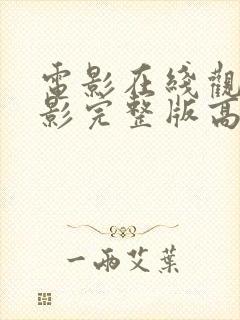 電影在綫觀
影完整版高
一兩艾葉